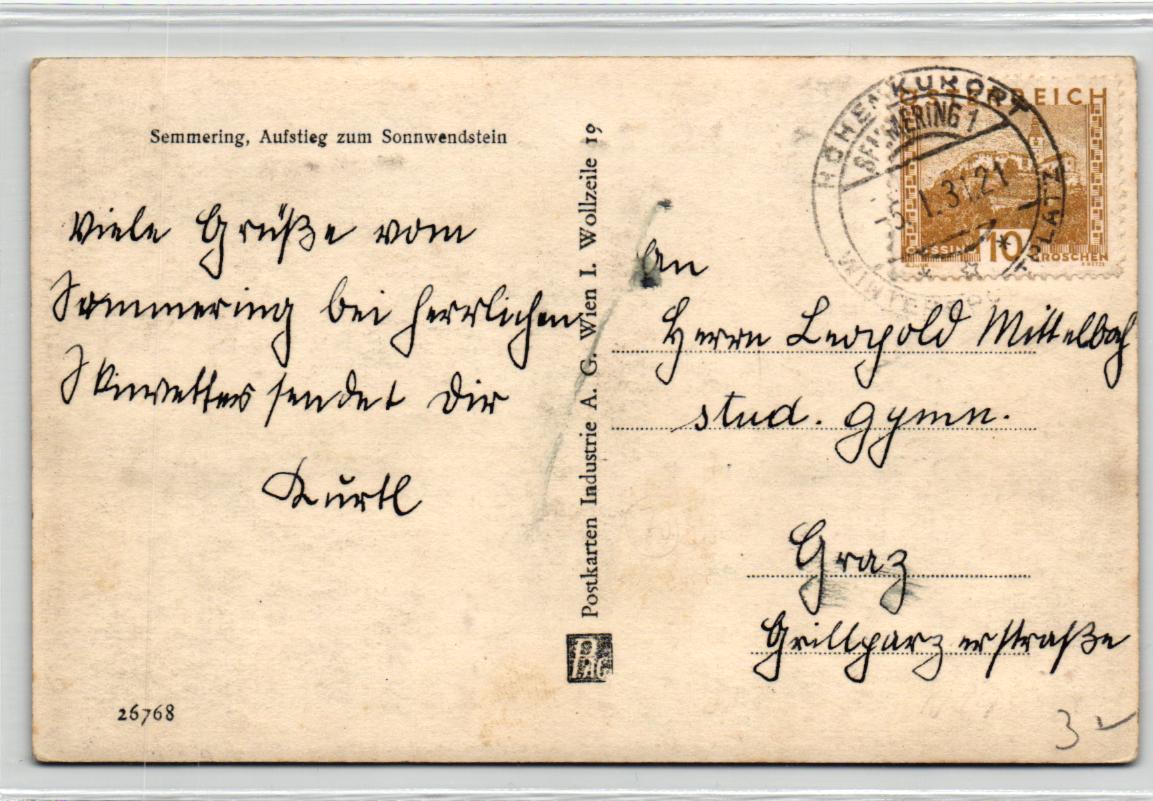 Semmering, Aufstieg zum Sonnwendstein
Viele Grüße vom
Semmering bei herrlichen
Skiwetter sendet Dir
Kurtl
26768
Postkarten Industrie A. G. Wien I. Wollzeile 19
PAG
HÖHENKURORT
SEMMERING 1
1.31.21
WINTERSPORTPLATZ
ÖSTERREICH
GÜSSING 10 GROSCHEN
An
Herrn Leopold Mittelbach
stud. gymn.
Graz
Grillparzerstraße
3